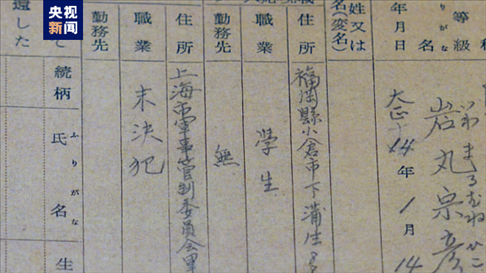 央视新闻
等級
りがな
名
岩丸宗彦
いわまるむねひこ
年月日
大正14年1月14
姓又は
名(変名)
住所
福岡縣小倉市下蒲生
職業
学生
勤務先
無
住所
上海市軍事管制委員会軍
職業
未決犯
勤務先
遺した
続柄
ふりがな
氏名
生